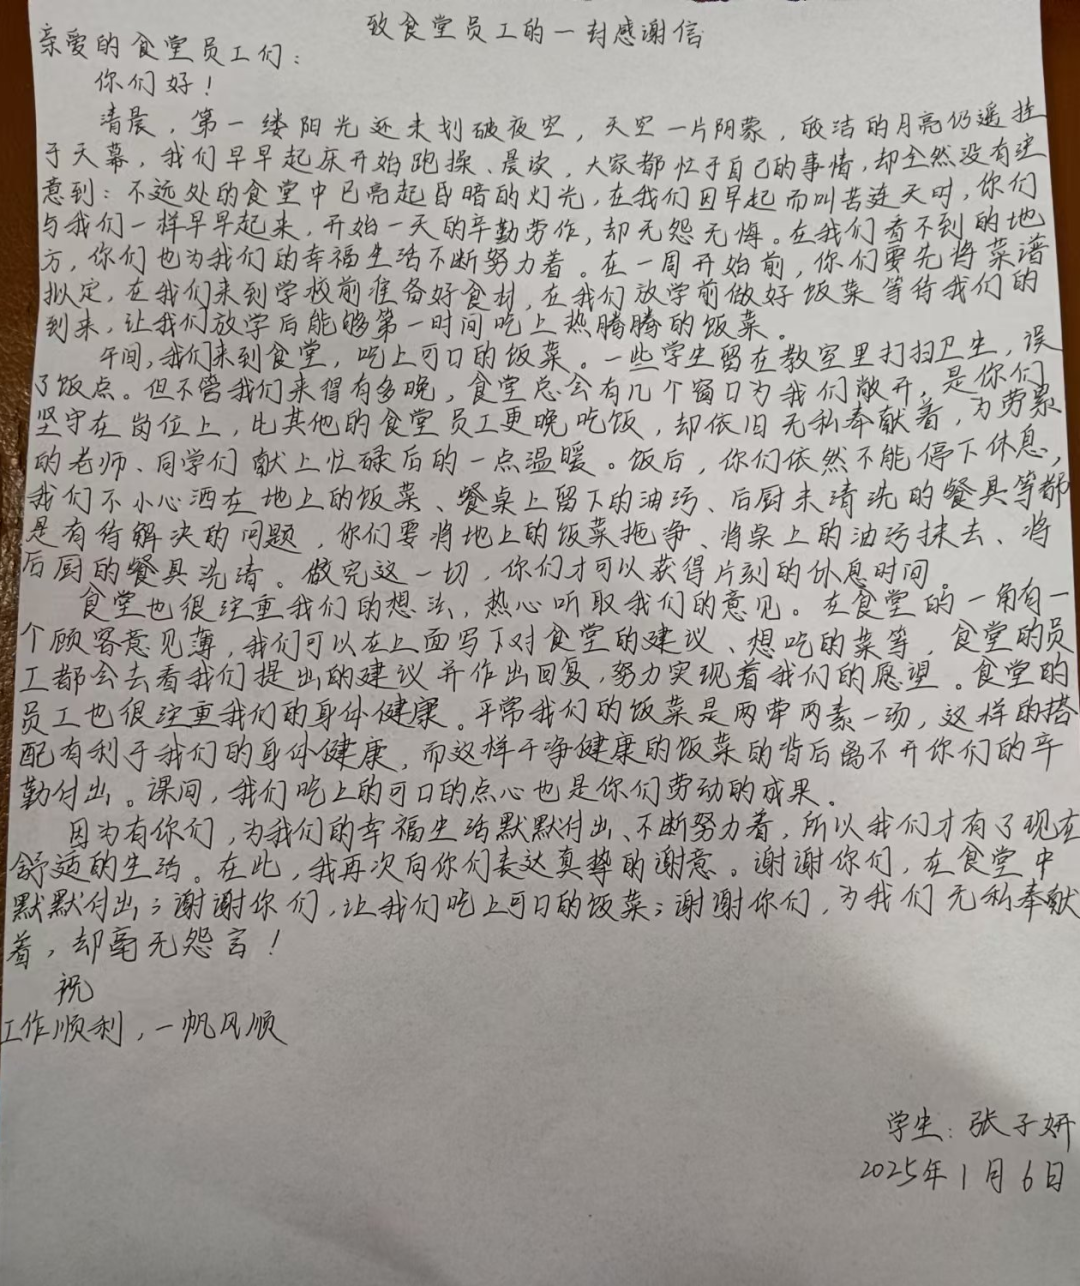 致食堂员工的一封感谢信
亲爱的食堂员工们：
你们好！
清晨，第一缕阳光还未划破夜空，天空一片阴蒙，皎洁的月亮仍遥挂
于天幕，我们早早起床开始跑操、晨读，大家都忙于自己的事情，却全然没有注
意到：不远处的食堂中已亮起昏暗的灯光，在我们因早起而叫苦连天时，你们
与我们一样早早起来，开始一天的辛勤劳作，却无怨无悔。在我们看不到的地
方，你们也为我们的幸福生活不断努力着。在一周开始前，你们要先将菜谱
拟定，在我们来到学校前准备好食材，在我们放学前做好饭菜等待我们的
到来，让我们放学后能够第一时间吃上热腾腾的饭菜。
午间，我们来到食堂，吃上可口的饭菜。一些学生留在教室里打扫卫生，误
了饭点。但不管我们来得有多晚，食堂总会有几个窗口为我们敞开，是你们
坚守在岗位上，比其他的食堂员工更晚吃饭，却依旧无私奉献着，为劳累
的老师、同学们献上忙碌后的一点温暖。饭后，你们依然不能停下休息，
我们不小心洒在地上的饭菜、餐桌上留下的油污、后厨未清洗的餐具等都
是有待解决的问题，你们要将地上的饭菜拖净、将桌上的油污抹去、将
后厨的餐具洗清。做完这一切，你们才可以获得片刻的休息时间。
食堂也很注重我们的想法，热心听取我们的意见。在食堂的一角有一
个顾客意见薄，我们可以在上面写下对食堂的建议、想吃的菜等，食堂的员
工都会去看我们提出的建议并作出回复，努力实现着我们的愿望。食堂的
员工也很注重我们的身体健康。平常我们的饭菜是两荤两素一汤，这样的搭
配有利于我们的身体健康，而这样干净健康的饭菜的背后离不开你们的辛
勤付出。课间，我们吃上的可口的点心也是你们劳动的成果。
因为有你们，为我们的幸福生活默默付出、不断努力着，所以我们才有了现在
舒适的生活。在此，我再次向你们表达真挚的谢意。谢谢你们，在食堂中
默默付出；谢谢你们，让我们吃上可口的饭菜；谢谢你们，为我们无私奉献
着，却毫无怨言！
祝
工作顺利，一帆风顺
学生：张子妍
2025年1月6日